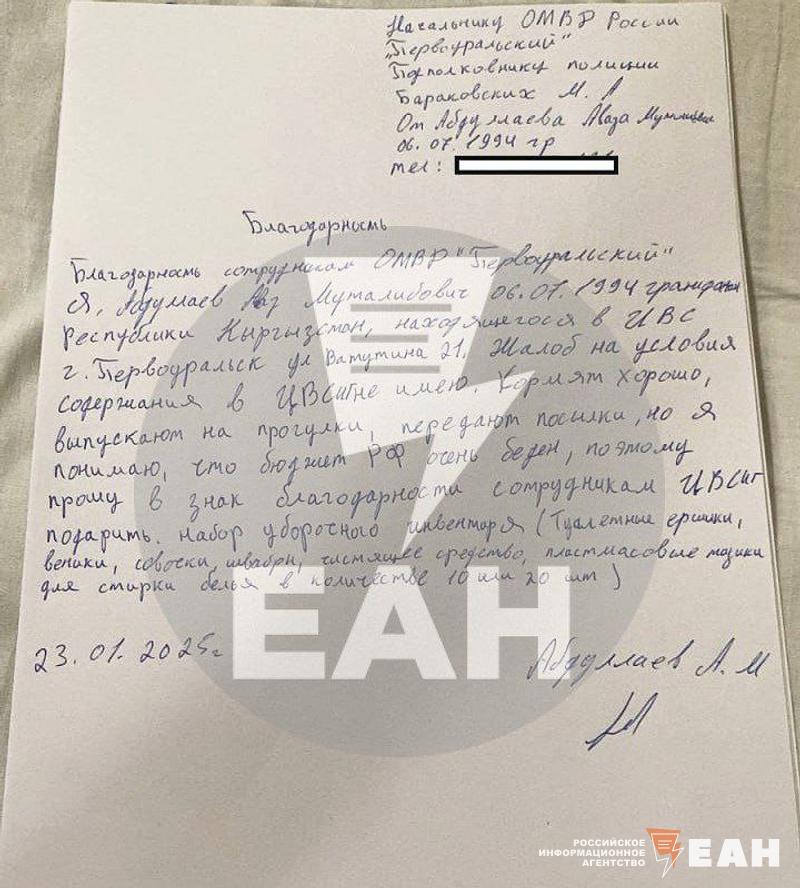 Начальнику ОМВР России
"Первоуральский"
Подполковнику полиции
Бараковских М. А
От Абдуллаева Аваза
06.07.1994 гр
тел:
Благодарность
Благодарность сотрудникам ОМВР "Первоуральский"
Я, Абдуллаев Муталибович 06.07.1994 гражданин
Республики Кыргызстан, находящегося в ЦВС
г. Первоуральск ул Ватутина 21. Жалоб на условия
содержания в ЦВСИГ не имею. Кормят хорошо,
выпускают на прогулки, передают посылки, но я
понимаю, что бюджет РФ очень беден, поэтому
прошу в знак благодарности сотрудникам ЦВСИГ
подарить. набор уборочного инвентаря (Туалетные ершики,
веники, совочки, швабры, чистящее средство, пластмасовые тазики
для стирки белья в количестве 10 или 20 шт)
23.01.2025г
Абдуллаев А. М
ЕАН
РОССИЙСКОЕ
ИНФОРМАЦИОННОЕ
АГЕНТСТВО
ЕАН